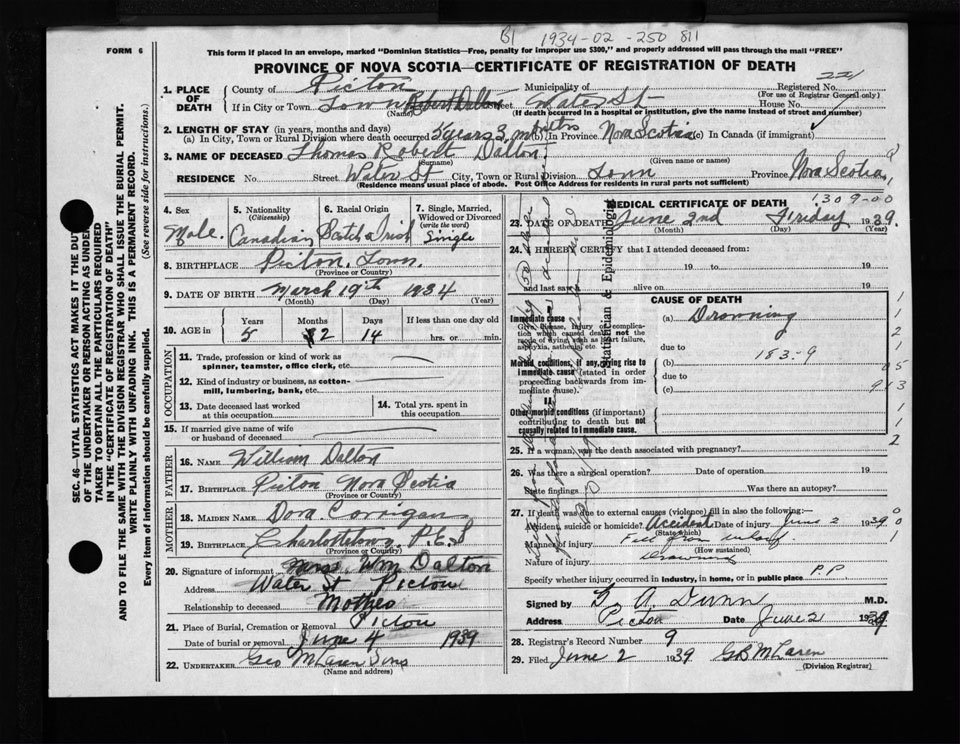 B1 1934-02-250 811
FORM 6
This form if placed in an envelope, marked "Dominion Statistics—Free, penalty for improper use $300," and properly addressed will pass through the mail "FREE"
PROVINCE OF NOVA SCOTIA—CERTIFICATE OF REGISTRATION OF DEATH
1. PLACE OF DEATH
County of Pictou Municipality of Registered No. 221
(For use of Registrar General only)
If in City or Town Town Robert Dalton Street Water St House No.
(Name) (If death occurred in a hospital or institution, give the name instead of street and number)
2. LENGTH OF STAY (in years, months and days)
(a) In City, Town or Rural Division where death occurred 5 years 3 months (b) In Province Nova Scotia (c) In Canada (if immigrant)
3. NAME OF DECEASED Thomas Robert Dalton
(Surname) (Given name or names)
RESIDENCE No. Street Water St City, Town or Rural Division Town Province Nova Scotia
(Residence means usual place of abode. Post Office Address for residents in rural parts not sufficient)
4. Sex 5. Nationality (Citizenship) 6. Racial Origin 7. Single, Married, Widowed or Divorced (write the word)
Male. Canadian Scotch & Irish Single
8. BIRTHPLACE Pictou, Town.
(Province or Country)
9. DATE OF BIRTH March 19th 1934
(Month) (Day) (Year)
10. AGE in Years Months Days If less than one day old
5 2 14 hrs. or min.
OCCUPATION
11. Trade, profession or kind of work as spinner, teamster, office clerk, etc.
12. Kind of industry or business, as cotton-mill, lumbering, bank, etc.
13. Date deceased last worked at this occupation
14. Total yrs. spent in this occupation
15. If married give name of wife or husband of deceased
FATHER
16. NAME William Dalton
17. BIRTHPLACE Pictou Nova Scotia
(Province or Country)
MOTHER
18. MAIDEN NAME Dora Corrigan
19. BIRTHPLACE Charlottetown, P.E.I
(Province or Country)
20. Signature of informant Mrs. Wm Dalton
Address Water St Pictou
Relationship to deceased Mother
21. Place of Burial, Cremation or Removal Pictou
Date of burial or removal June 4 1939
22. UNDERTAKER Geo McLaren Sons
(Name and address)
1309-00
MEDICAL CERTIFICATE OF DEATH
23. DATE OF DEATH June 2nd Friday 1939.
(Month) (Day) (Year)
24. I HEREBY CERTIFY that I attended deceased from:
19 to 19
and last saw alive on 19
CAUSE OF DEATH
Immediate cause
Give disease, injury or complication which caused death not the mode of dying, such as heart failure, asphyxia, asthenia, etc.
(a) Drowning
due to
Morbid conditions, if any, giving rise to immediate cause (stated in order proceeding backwards from immediate cause).
(b) 183-9
due to
(c)
Other morbid conditions (if important) contributing to death but not causally related to immediate cause.
Statistician & Epidemiologist
25. If a woman, was the death associated with pregnancy?
26. Was there a surgical operation? Date of operation 19
State findings Was there an autopsy?
27. If death was due to external causes (violence) fill in also the following:—
Accident, suicide or homicide? Accident Date of injury June 2 1939
(State which)
Manner of injury Fell from wharf
(How sustained)
Nature of injury Drowning
Specify whether injury occurred in industry, in home, or in public place P.P
Signed by G. A. Dunn M.D.
Address Pictou Date June 21 1939
28. Registrar's Record Number 9
29. Filed June 2 1939 GB McLaren
(Division Registrar)
SEC. 46—VITAL STATISTICS ACT MAKES IT THE DUTY
OF THE UNDERTAKER OR PERSON ACTING AS UNDER-
TAKER TO OBTAIN ALL THE PARTICULARS REQUIRED
IN THE "CERTIFICATE OF REGISTRATION OF DEATH"
AND TO FILE THE SAME WITH THE DIVISION REGISTRAR WHO SHALL ISSUE THE BURIAL PERMIT.
WRITE PLAINLY WITH UNFADING INK. THIS IS A PERMANENT RECORD.
Every item of information should be carefully supplied. (See reverse side for instructions.)